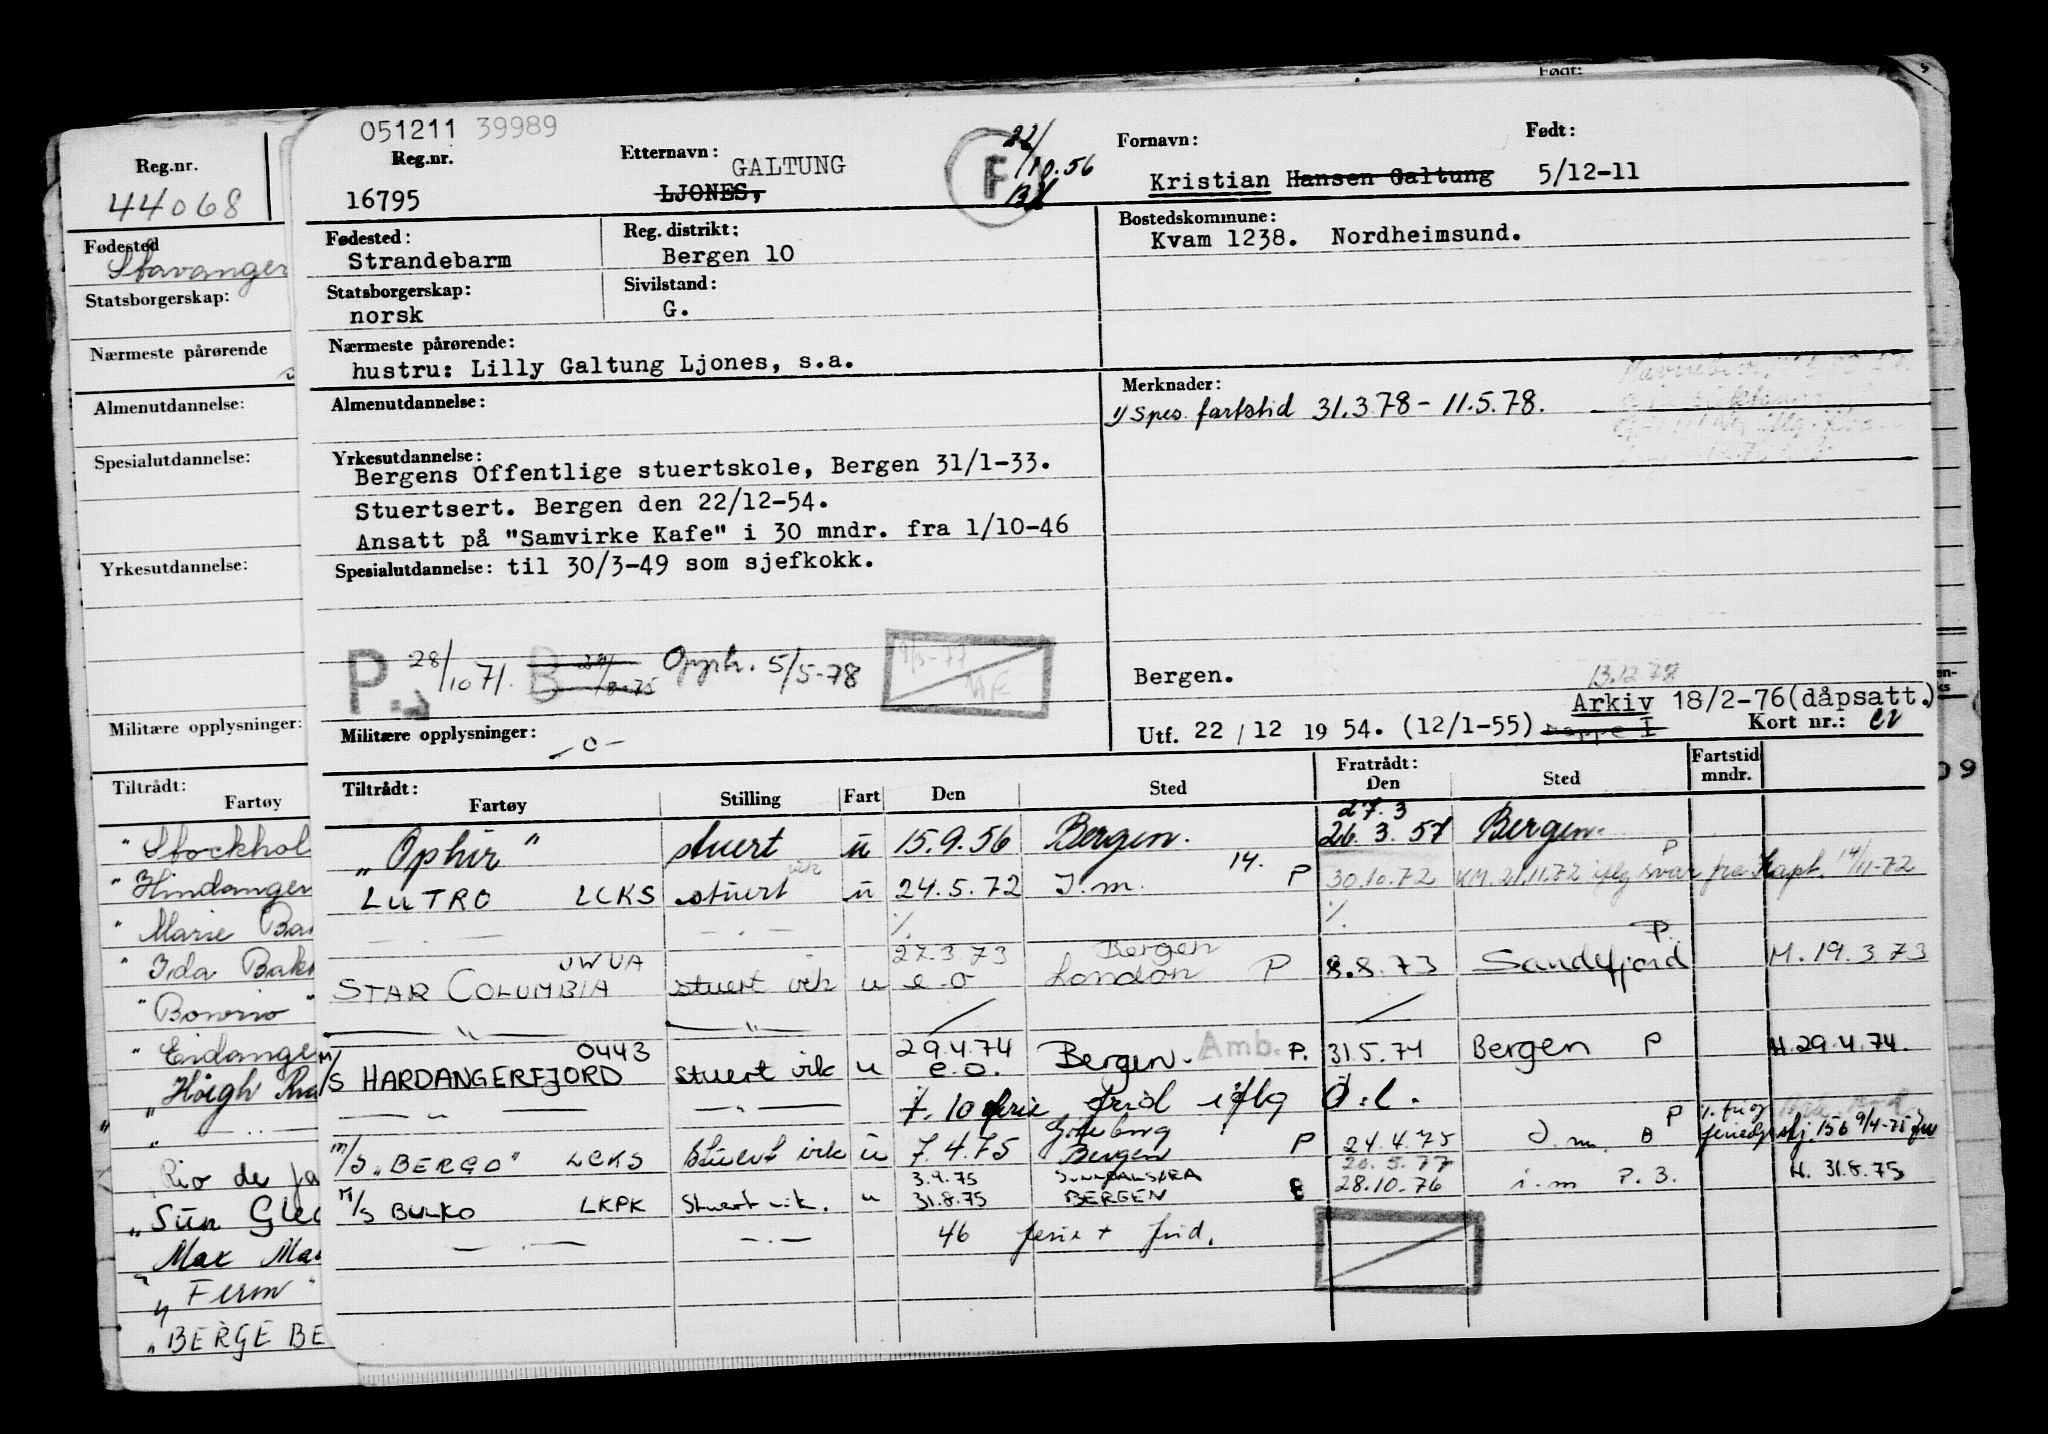 Født:
051211 39989
Reg.nr. Etternavn: Fornavn: Født:
22/10.56
GALTUNG
F
16795 LJONES, Kristian Hansen Galtung 5/12-11
Fødested: Reg. distrikt: Bostedskommune:
Strandebarm Bergen 10 Kvam 1238. Nordheimsund.
Statsborgerskap: Sivilstand:
norsk G.
Nærmeste pårørende:
hustru: Lilly Galtung Ljones, s.a.
Almenutdannelse: Merknader:
1) Spes. fartstid 31.3.78 - 11.5.78.
Yrkesutdannelse:
Bergens Offentlige stuertskole, Bergen 31/1-33.
Stuertsert. Bergen den 22/12-54.
Ansatt på "Samvirke Kafe" i 30 mndr. fra 1/10-46
Spesialutdannelse: til 30/3-49 som sjefkokk.
P. 28/10 71. B Opph. 5/5-78
Bergen. 13.12.78
Arkiv 18/2-76(dåpsatt.)
Militære opplysninger: -o- Utf. 22 / 12 19 54. (12/1-55) Kort nr.:
Tiltrådt: Fratrådt: Fartstid
Fartøy Stilling Fart Den Sted Den Sted mndr.
27.3
"Ophir" stuert u 15.9.56 Bergen. 26.3.57 Bergen.
LUTRO LCKS stuert vik u 24.5.72 I.m. 14. P 30.10.72 KM. 21.11.72 iflg svar fra Kapt. 14/11-72
27.3.73 Bergen P.
STAR COLUMBIA UWUA stuert vik u e.o London P 8.8.73 Sandefjord M. 19.3.73
29.4.74 Amb.
M/S HARDANGERFJORD 0443 stuert vik u e.o. Bergen. P. 31.5.74 Bergen P H. 29.4.74.
7. 10 ferie frid iflg
Göteborg
M/S "BERGO" LCKS Stuert vik u 7.4.75 Bergen P 24.4.75 I.m. B
3.9.75 SUNNDALSØRA 20.5.77
M/S BULKO LKPK Stuert vik. u 31.8.75 BERGEN 28.10.76 i.m P. 3. H. 31.8.75
46 ferie + frid.
Reg.nr.
44068
Fødested
Stavanger
Statsborgerskap:
Nærmeste pårørende
Almenutdannelse:
Spesialutdannelse:
Yrkesutdannelse:
Militære opplysninger:
Tiltrådt:
Fartøy
"Stockhol
"Hindanger
"Marie Bak
"Ida Bak
"Borgny"
"Eidanger
"Høigh
Rio de Ja
"Sun Gle
Mar Ma
"Ferm"
"BERGE BE
09